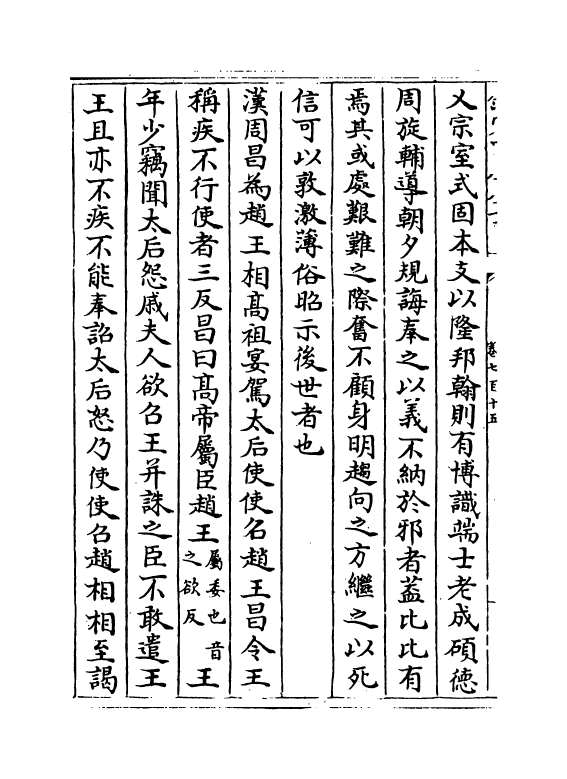 乂宗室式固本支以隆邦翰則有博識端士老成碩徳
周旋輔導朝夕規誨奉之以義不納於邪者葢比比有
焉其或處艱難之際奮不顧身明趨向之方繼之以死
信可以敦激薄俗昭示後世者也
漢周昌為趙王相髙祖宴駕太后使使名趙王昌令王
稱疾不行使者三反昌曰髙帝屬臣趙王屬委也音之欲反王
年少竊聞太后怨戚夫人欲召王并誅之臣不敢遣王
王且亦不疾不能奉詔太后怒乃使使召趙相相至謁
卷七百十五